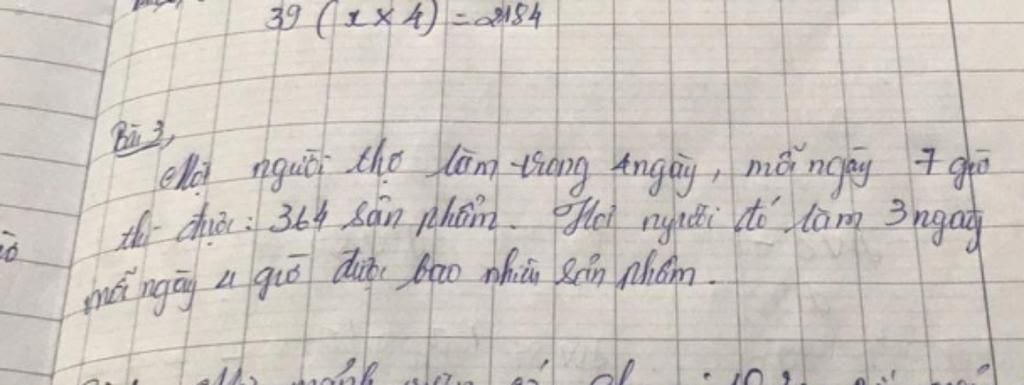 39 (x × 4) = 2184
Bài 3,
Một người thợ làm trong 4 ngày, mỗi ngày 7 giờ
thì được: 364 sản phẩm. Hỏi người đó làm 3 ngày
mỗi ngày 4 giờ được bao nhiêu sản phẩm.